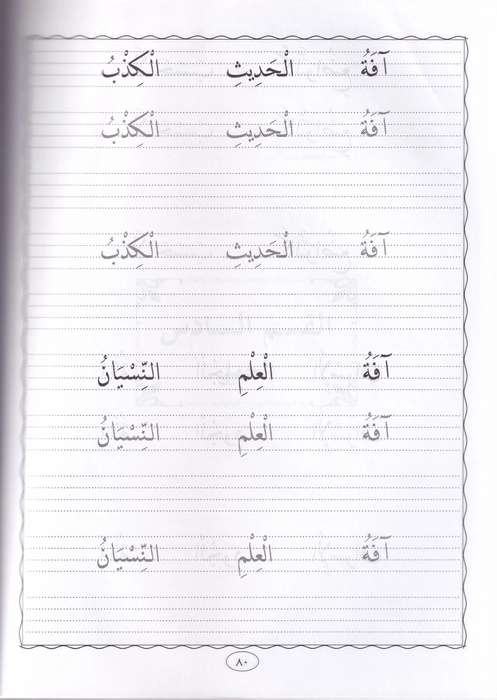 آفَةُ الْحَدِيثِ الْكِذْبُ
آفَةُ الْحَدِيثِ الْكِذْبُ
آفَةُ الْحَدِيثِ الْكِذْبُ
آفَةُ الْعِلْمِ النِّسْيَانُ
آفَةُ الْعِلْمِ النِّسْيَانُ
آفَةُ الْعِلْمِ النِّسْيَانُ
٨٠